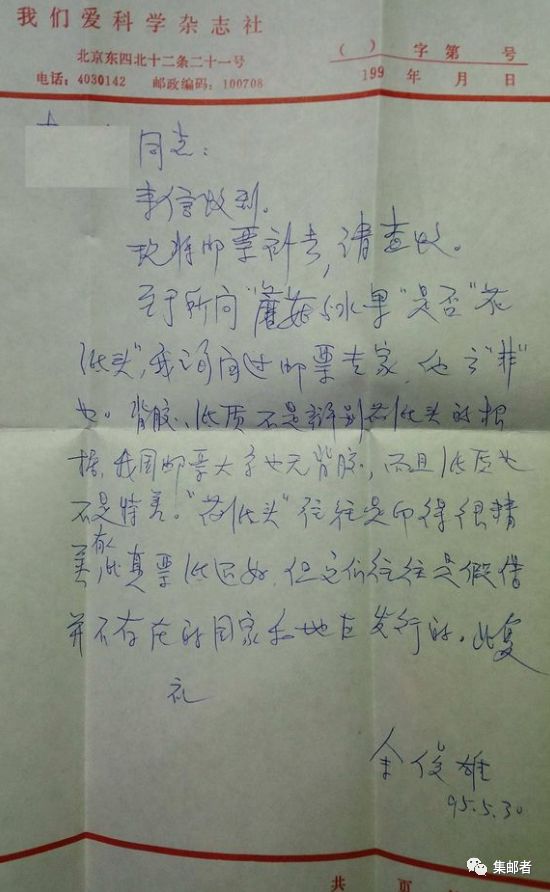 我们爱科学杂志社
北京东四北十二条二十一号
电话：4030142 邮政编码：100708
（ ）字第 号
199 年 月 日
同志：
来信收到。
现将邮票寄去，请查收。
至于所问"蘑菇与水果"是否"花
纸头"，我询问过邮票专家，他言"非"
也。背胶、纸质不是辨别花纸头的根
据，我国邮票大多也无背胶，而且纸质也
不是特差。"花纸头"往往是印得很精
美，有的比真票纸还好，但它们往往是假借
并不存在的国家和地区发行的。此复
礼
余俊雄
95.5.30
共 页
集邮者